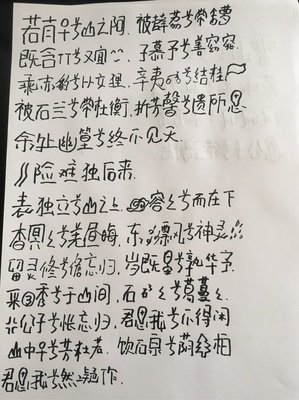 若有人兮山之阿 被薜荔兮带女萝
既含睇兮又宜笑 子慕予兮善窈窕
乘赤豹兮从文狸 辛夷车兮结桂旗
被石兰兮带杜衡 折芳馨兮遗所思
余处幽篁兮终不见天
路险难独后来
表独立兮山之上 云容容兮而在下
杳冥冥兮羌昼晦 东风飘兮神灵雨
留灵修兮憺忘归 岁既晏兮孰华予
采三秀兮于山间 石磊磊兮葛蔓蔓
怨公子兮怅忘归 君思我兮不得闲
山中人兮芳杜若 饮石泉兮荫松柏
君思我兮然疑作